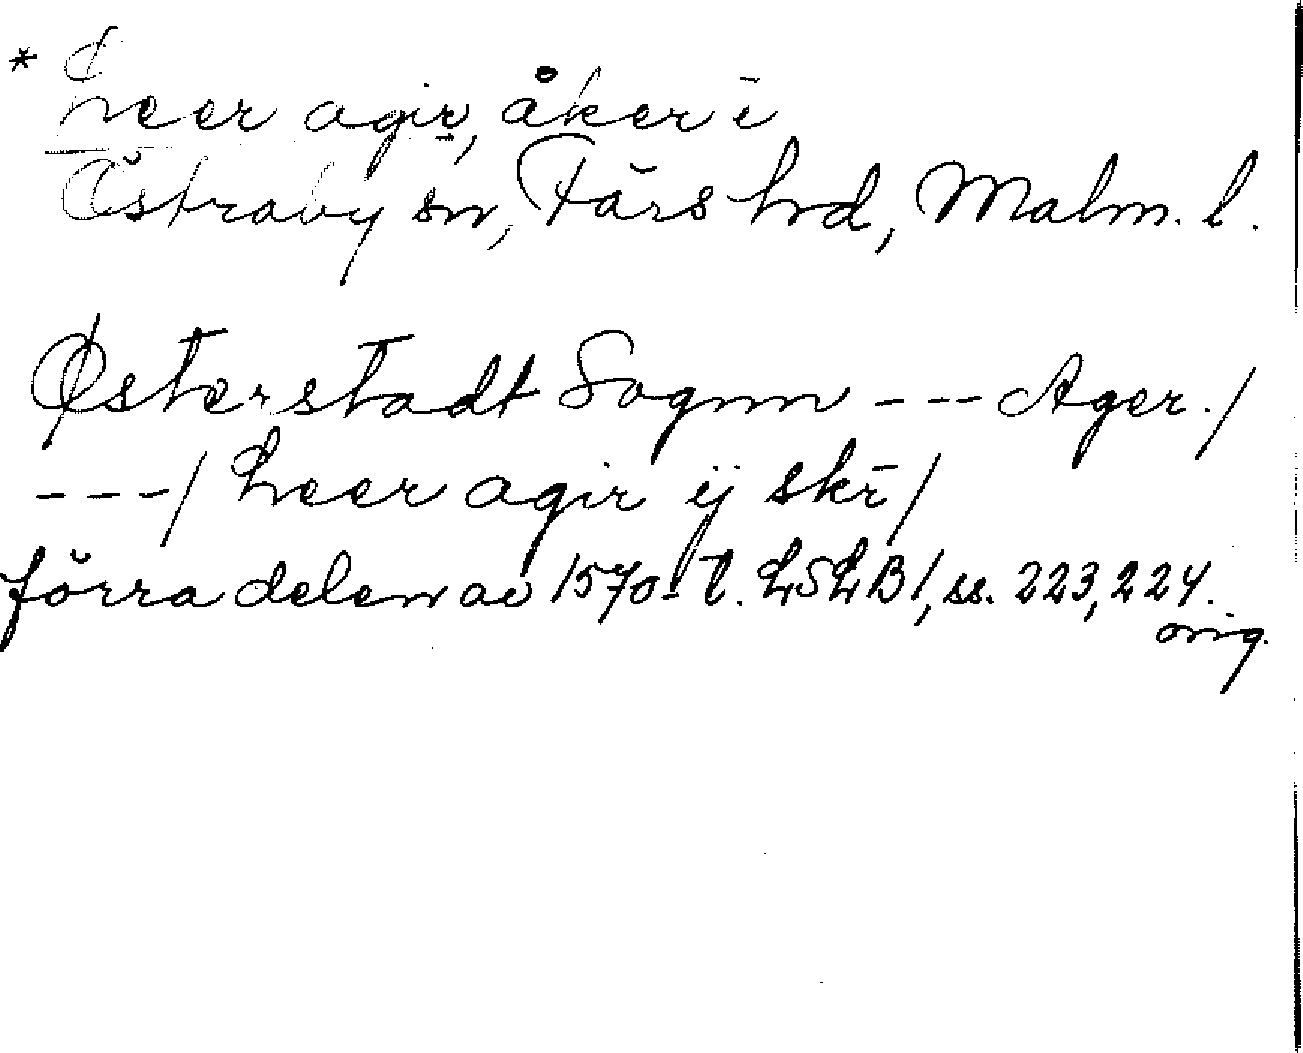 * Leer agir, åker i
Östraby sn, Färs hd, Malm. l.
Østerstadt Sognn --- Ager./
---/ Leer agir ij skī/
förra delen av 1570-t. LSLB1, ss. 223, 224.
orig.